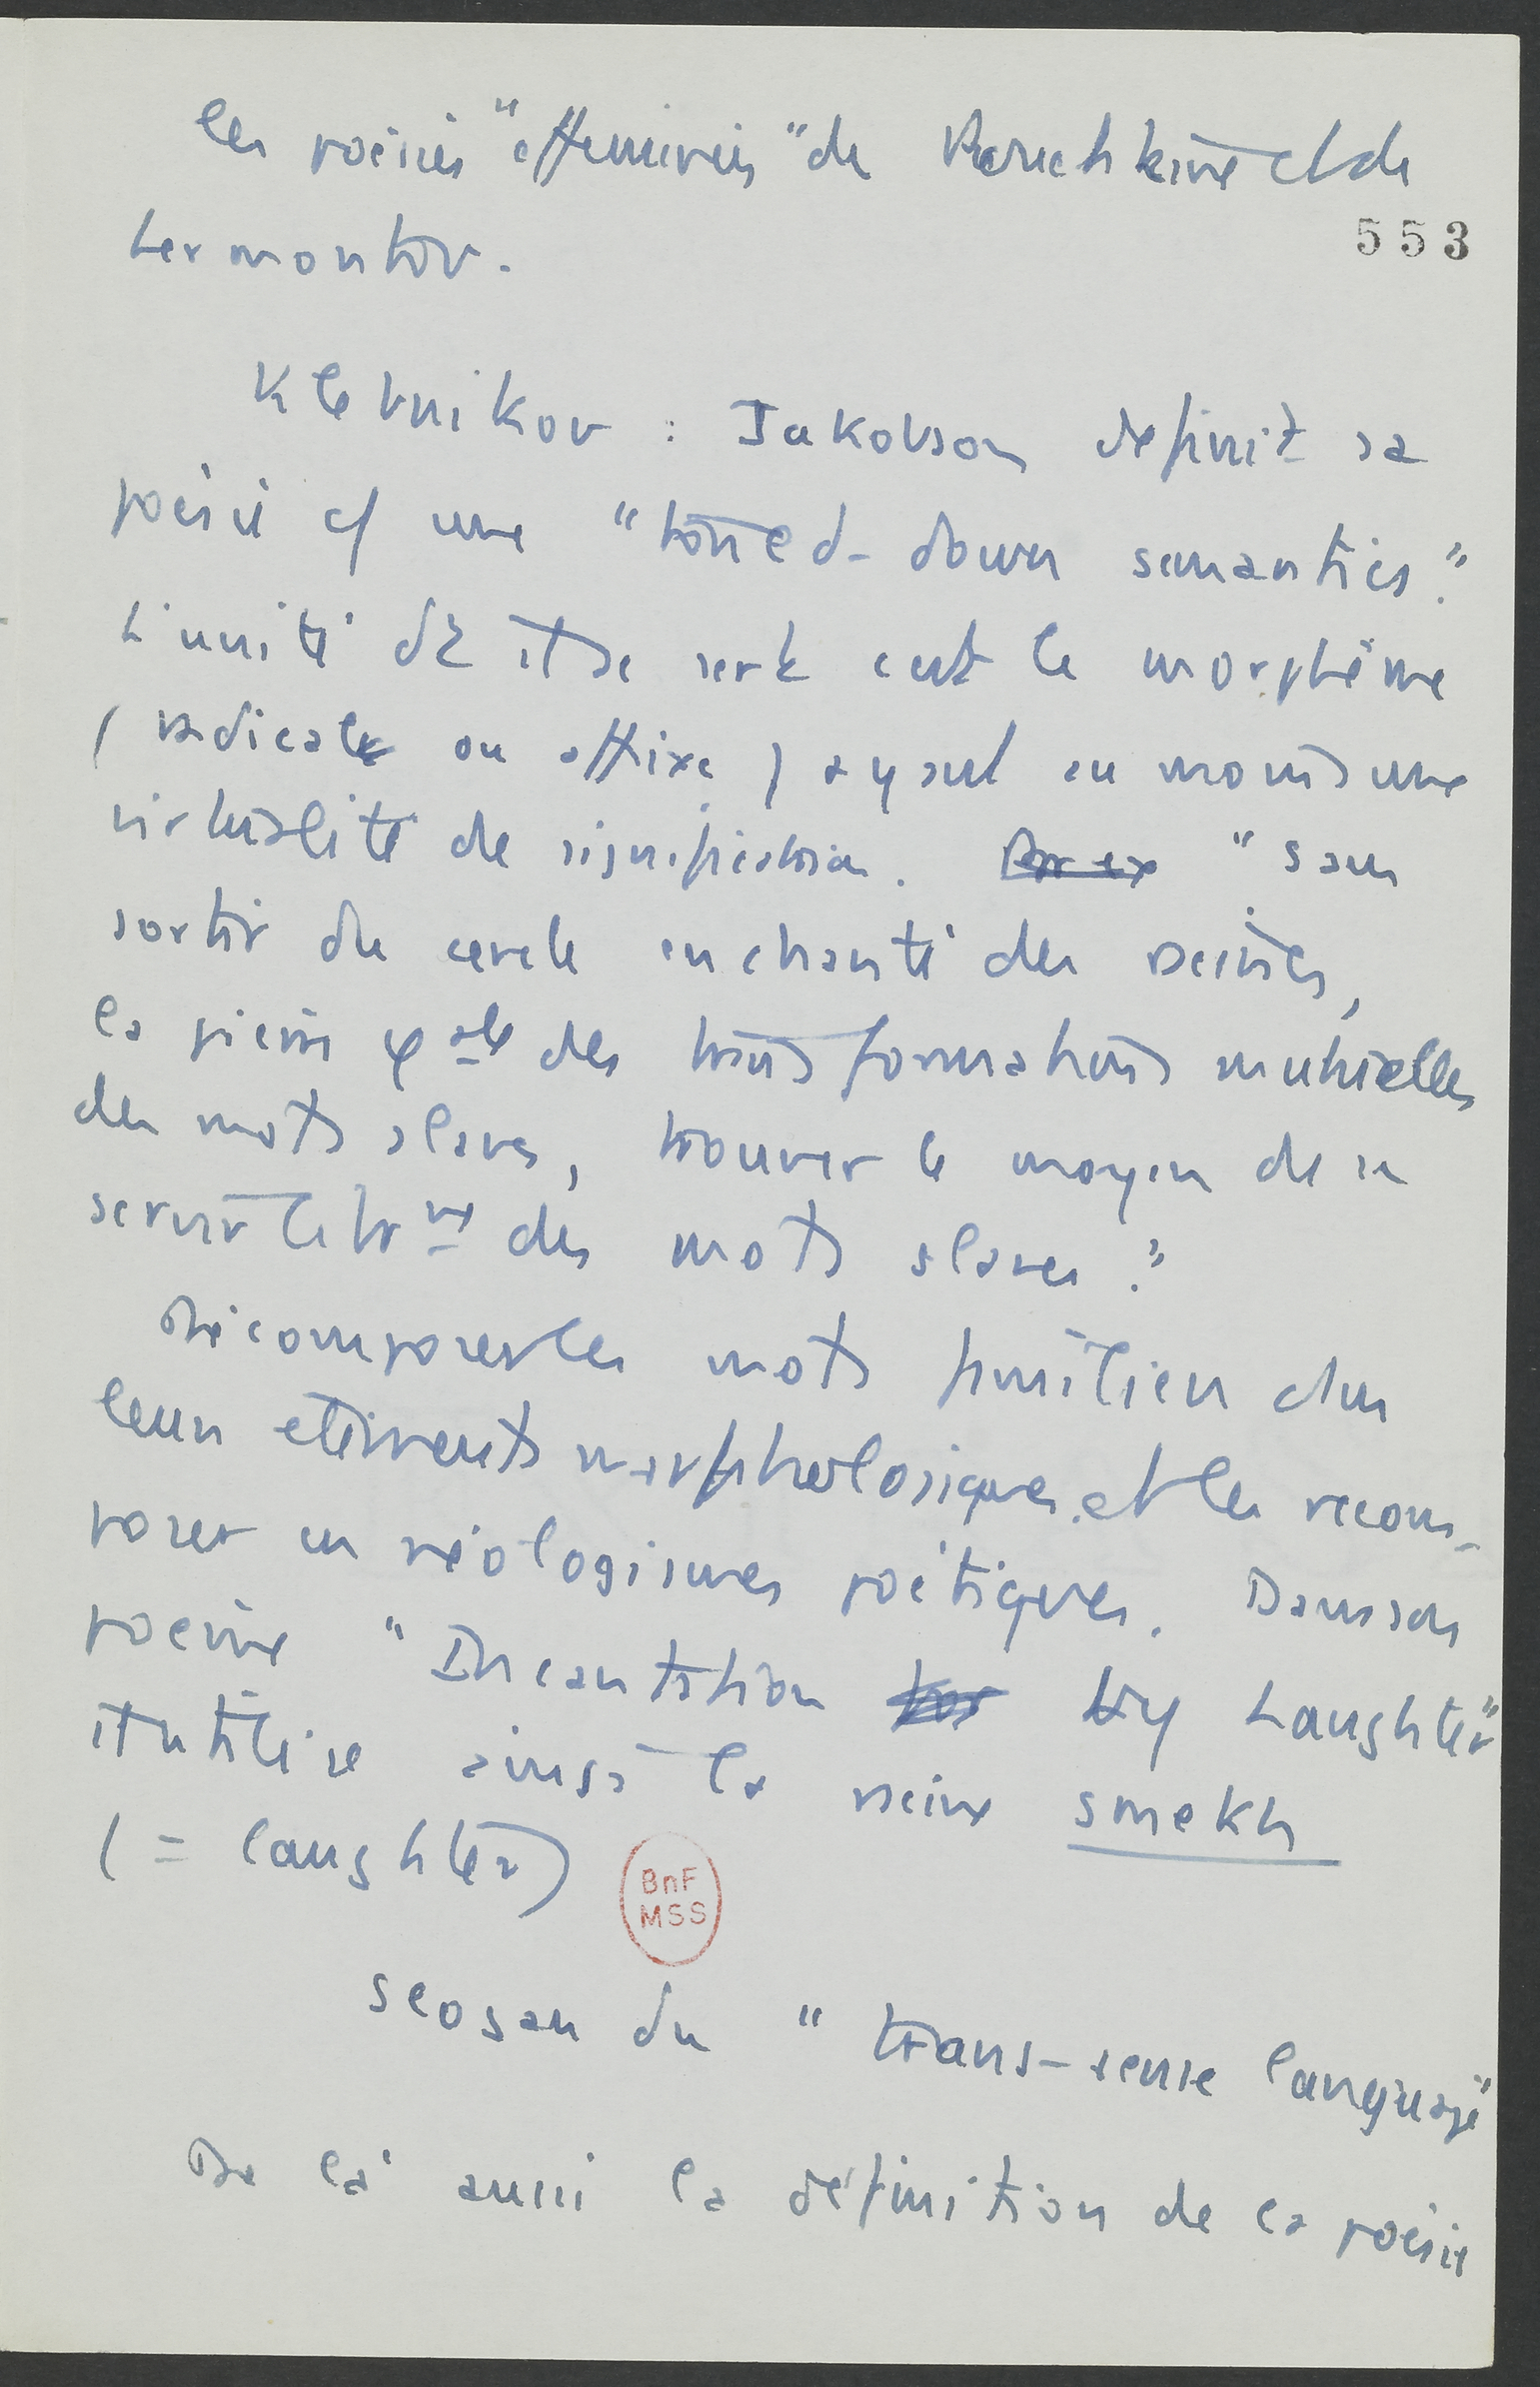 les poésies "efféminées" de Pouchkine et de
553
Lermontov.
Klebnikov : Jakobson définit sa
poésie cf une "toned-down semantics".
L'unité dt il se sert est le morphème
(radicale ou affixe) ayant au moins une
virtualité de signification. Par ex "sans
sortir du cercle enchanté des racines,
la pierre φale des transformations mutuelles
des mots slaves, trouver le moyen de se
servir librmt des mots slaves".
Décomposer les mots familiers dans
leurs éléments morphologiques et les recom-
poser en néologismes poétiques. Dans son
poème "Incantation by Laughter"
il utilise ainsi la racine smekh
(= laughter)
BnF
MSS
slogan du "trans-sense language"
De là aussi la définition de la poésie